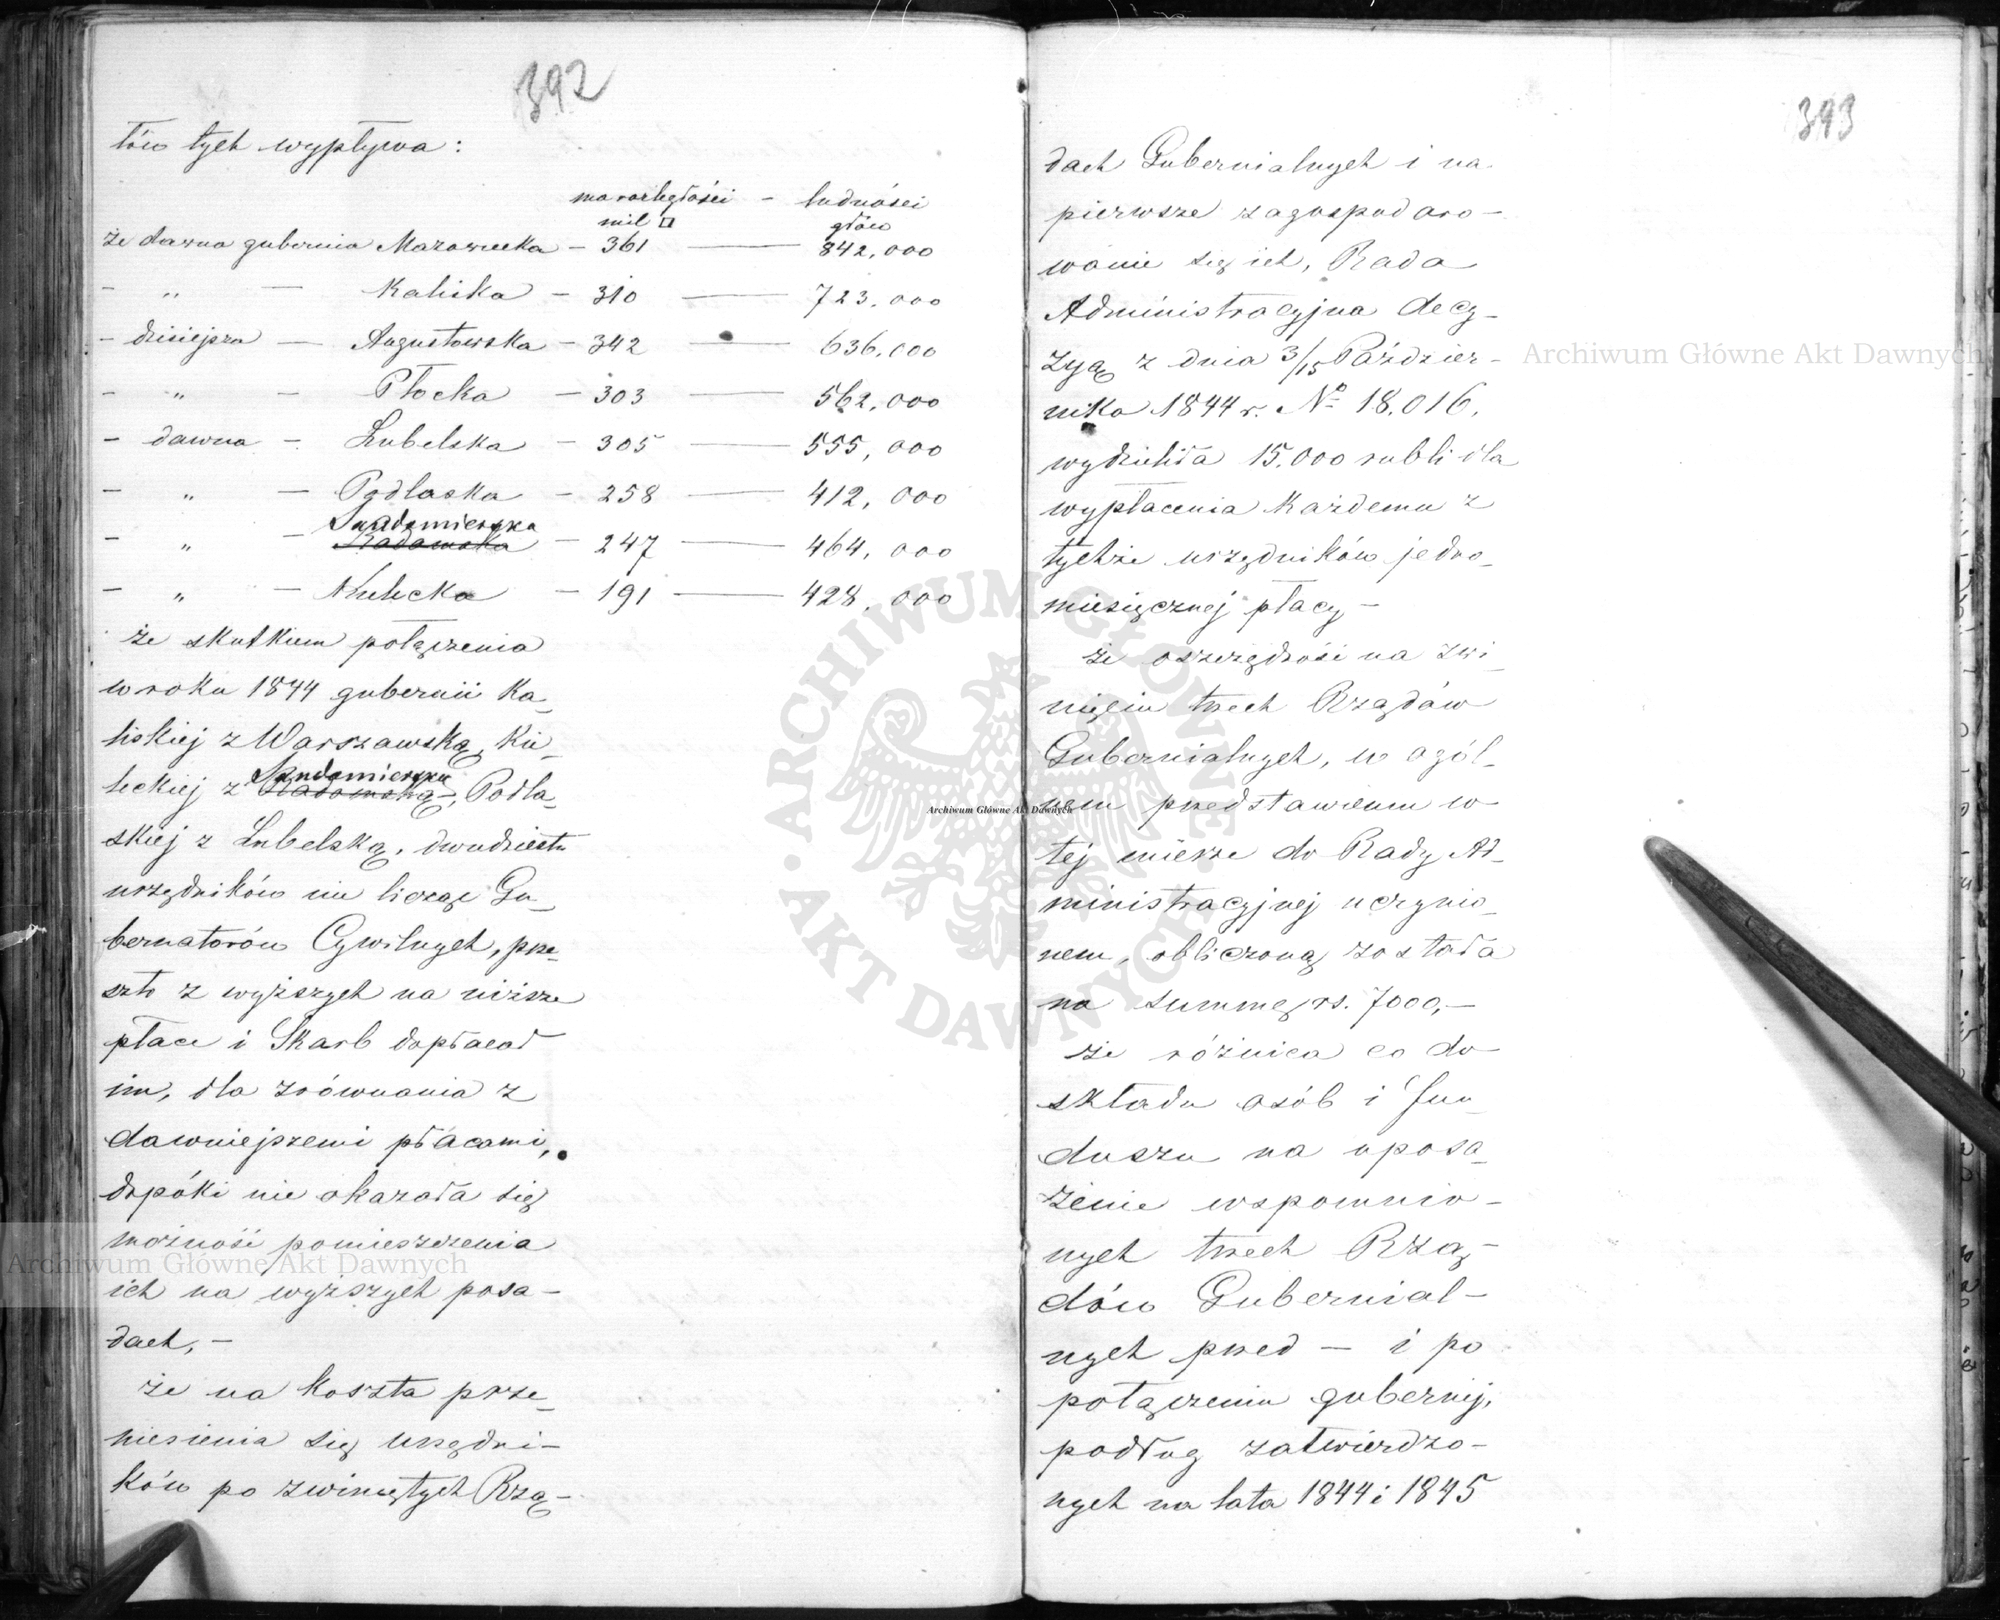 392
tów tych wypływa:
ma rozległości - ludności
mil □ głów
że dawna gubernia Mazowiecka - 361 — 842,000
- „ — Kaliska - 310 — 723.000
- dzisiejsza — Augustowska - 342 — 636.000
- „ — Płocka - 303 — 562.000
- dawna - Lubelska - 305 — 555,000
- „ — Podlaska - 258 — 412,000
Sandomierska
- „ — Radomska - 247 — 464,000
- „ — Kielecka - 191 — 428,000
że skutkiem połączenia
w roku 1844 gubernii Ka_
liskiej z Warszawską, Kie_
Sandomierską
leckiej z Radomską, Podla_
skiej z Lubelską, dwudziestu
urzędników nie licząc Gu_
bernatorów Cywilnych, prze_
szło z wyższych na niższe
płace i Skarb dopłacał
im, dla zrównania z
dawniejszemi płacami,
dopóki nie okazała się
możność pomieszczenia
ich na wyższych posa-
dach, -
że na koszta prze_
niesienia się urzędni-
ków po zwiniętych Rzą-
393
dach Gubernialnych i na
pierwsze zagospodaro-
wanie się ich, Rada
Administracyjna decy-
zyą z dnia 3/15 Paździer-
nika 1844 r. No 18.016,
wydzieliła 15.000 rubli dla
wypłacenia każdemu z
tychże urzędników jedno_
miesięcznej płacy -
że oszczędność na zwi_
nięciu trzech Rządów
Gubernialnych, w ogól_
nem przedstawieniu w
tej mierze do Rady Ad_
ministracyjnej uczynio_
nem, obliczoną została
na summę rs. 7000,-
że różnica co do
składu osób i fun_
duszu na uposa_
żenie wspomnio-
nych trzech Rzą-
dów Gubernial-
nych przed - i po
połączeniu gubernij,
podług zatwierdzo-
nych na lata 1844 i 1845
Archiwum Główne Akt Dawnych
Archiwum Główne Akt Dawnych
Archiwum Główne Akt Dawnych
ARCHIWUM GŁÓWNE AKT DAWNYCH